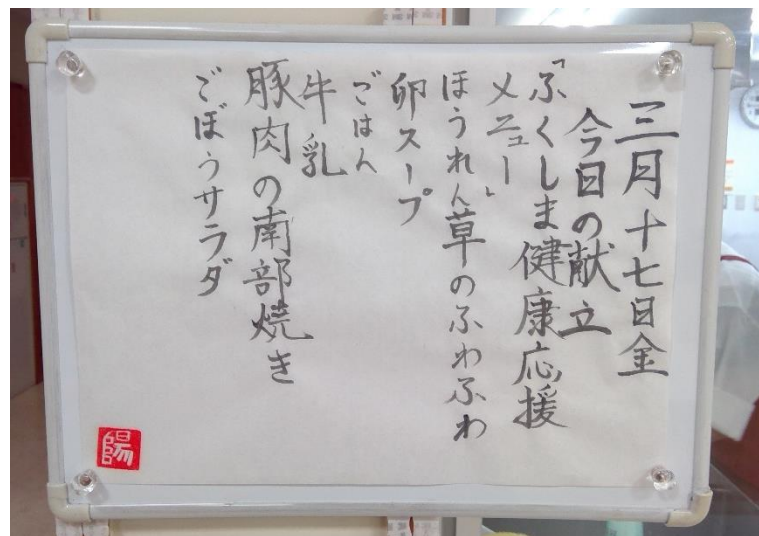 三月十七日金
今日の献立
「ふくしま健康応援
メニュー」
ほうれん草のふわふわ
卵スープ
ごはん
牛乳
豚肉の南部焼き
ごぼうサラダ
陽